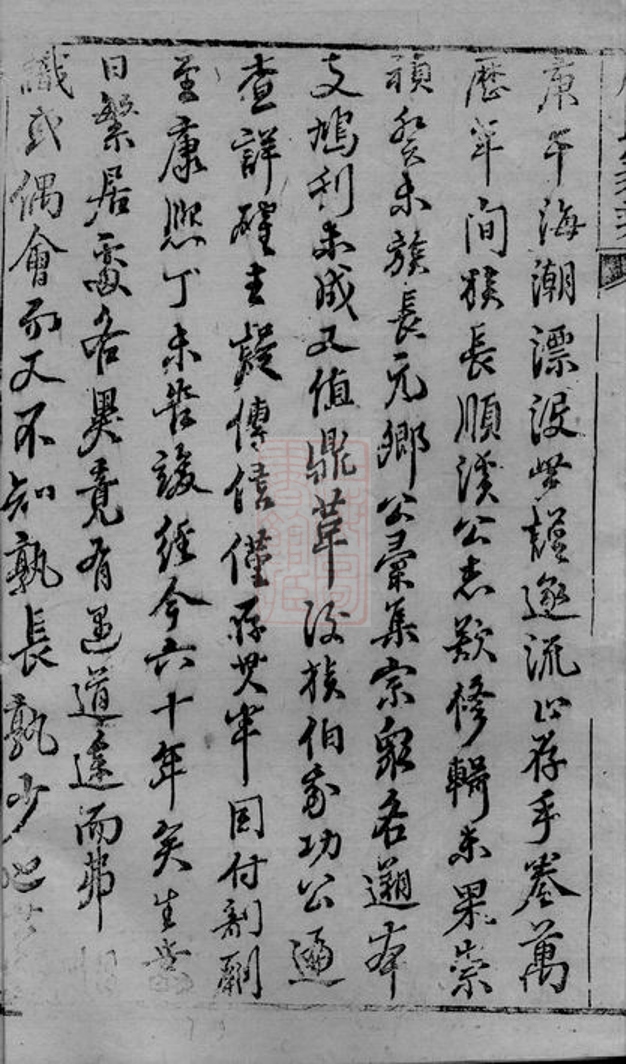 庚午海潮漂没世謹遂流止存手卷萬
歷年間族長順溪公志欲修輯未果崇
禎癸未族長元鄉公彙集宗親各遡本
支鳩利未成又值鼎革後族伯公功公遍
查詳確去疑傳信僅存其半因付剞劂
至康熙丁未告竣經今六十年矣生齒
日繁居處各異竟有遇道途而弗相
識或偶會而又不知孰長孰少也